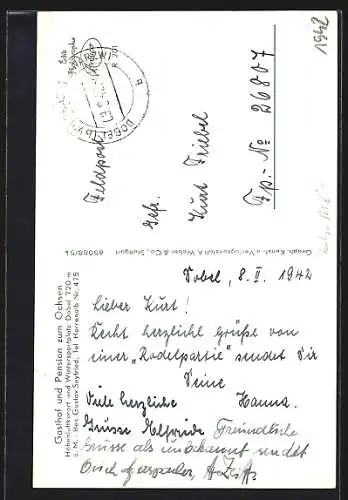 1942
Feldpost
Gefr.
Kurt Triebel
Fp.-No 26807
Graph. Kunst- u. Verlagsanstalt A. Weber & Co., Stuttgart
65088/51
Gasthof und Pension zum Ochsen
Höhenluftkurort und Wintersportplatz Dobel 720 m
ü. M. · Bes. Gustav Seyfried, Tel. Herrenalb Nr. 475
Dobel, 8. II. 1942
Lieber Kurt!
Recht herzliche Grüße von
einer "Rodelpartie" sendet Dir
Deine
Hanna.
Viele herzliche
Grüsse Elfriede
Freundliche
Grüsse als unbekannt sendet